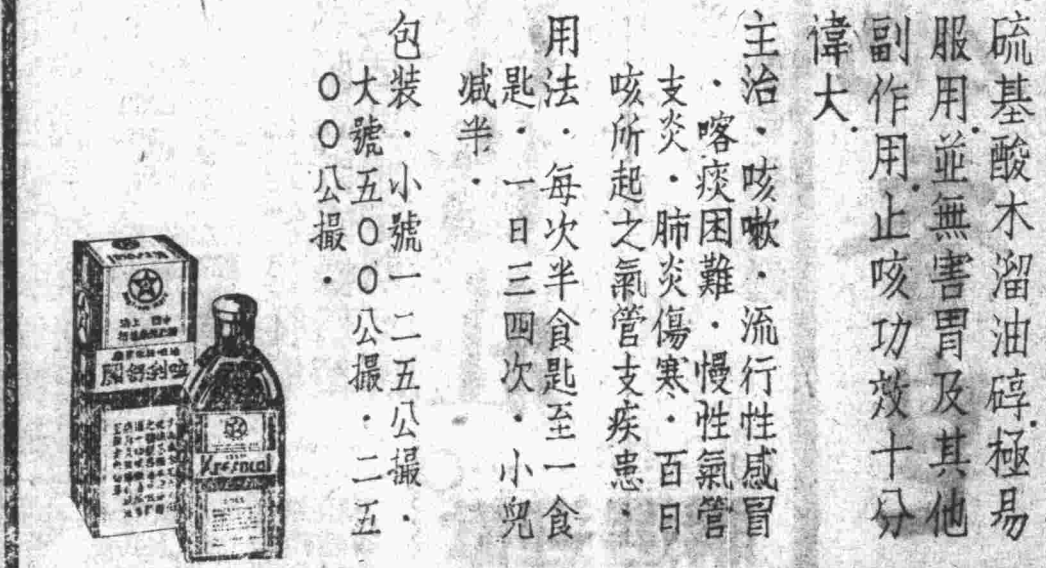 硫基酸木溜油醇．極易
服用．並無害胃及其他
副作用．止咳功效十分
偉大．
主治．咳嗽．流行性感冒
．喀痰困難．慢性氣管
支炎．肺炎傷寒．百日
咳所起之氣管支疾患．
用法．每次半食匙至一食
匙．一日三四次．小兒
減半．
包裝．小號一二五公撮．
大號五〇〇公撮．二五
〇〇公撮．